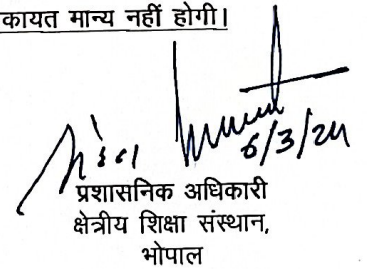 कायत मान्य नहीं होगी।
6/3/24
प्रशासनिक अधिकारी
क्षेत्रीय शिक्षा संस्थान,
भोपाल